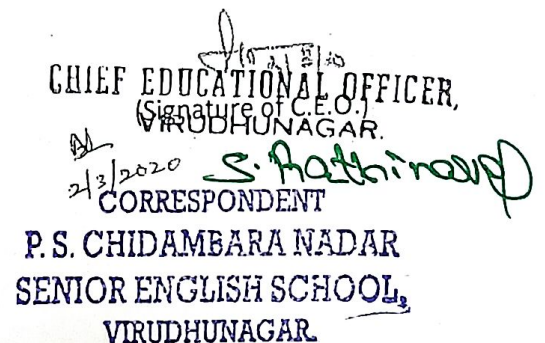 CHIEF EDUCATIONAL OFFICER,
(Signature of C.E.O.)
VIRUDHUNAGAR.
2/3/2020
CORRESPONDENT
P. S. CHIDAMBARA NADAR
SENIOR ENGLISH SCHOOL,
VIRUDHUNAGAR.